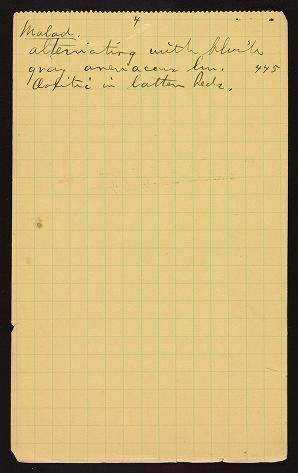 4
Malad.
alternating with blu'h
gray arenaceous lm. 445
Oolitic in latter beds.